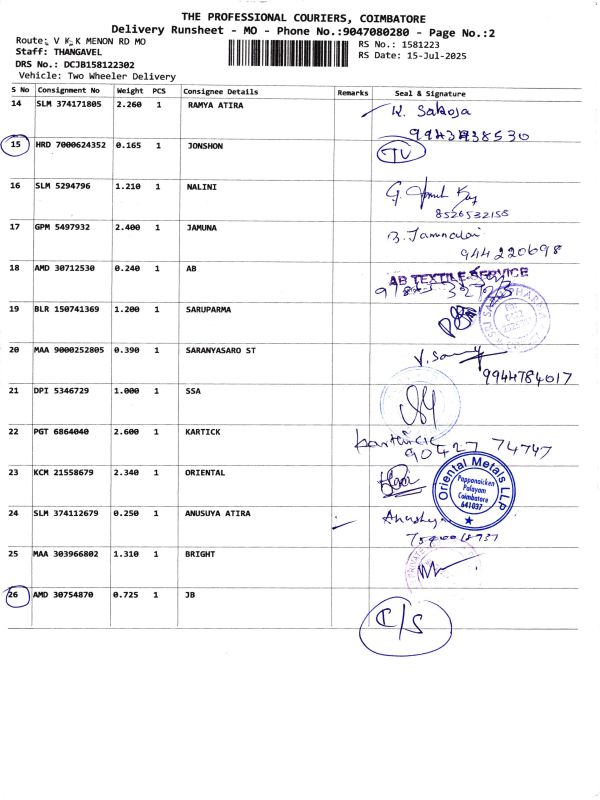 THE PROFESSIONAL COURIERS, COIMBATORE
Delivery Runsheet - MO - Phone No.:9047080280 - Page No.:2
Route: V K K MENON RD MO
Staff: THANGAVEL
DRS No.: DCJB158122302
Vehicle: Two Wheeler Delivery
RS No.: 1581223
RS Date: 15-Jul-2025
S No Consignment No Weight PCS Consignee Details Remarks Seal & Signature
14 SLM 374171805 2.260 1 RAMYA ATIRA
15 HRD 7000624352 0.165 1 JONSHON
16 SLM 5294796 1.210 1 NALINI
8526532155
17 GPM 5497932 2.400 1 JAMUNA
944220698
18 AMD 30712530 0.240 1 AB AB TEXTILE SERVICE
19 BLR 150741369 1.200 1 SARUPARMA
20 MAA 9000252805 0.390 1 SARANYASARO ST
9944784017
21 DPI 5346729 1.000 1 SSA
22 PGT 6864040 2.600 1 KARTICK
90427 74747
23 KCM 21558679 2.340 1 ORIENTAL Oriental Metals LLP
Pappanaicken
Palayam
Coimbatore
641037
24 SLM 374112679 0.250 1 ANUSUYA ATIRA
25 MAA 303966802 1.310 1 BRIGHT
26 AMD 30754870 0.725 1 JB C/S